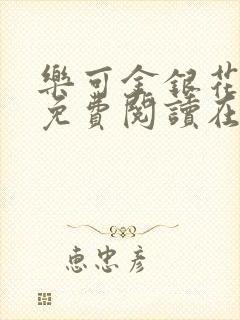 樂可金銀花
免費閱讀在
惠忠彥